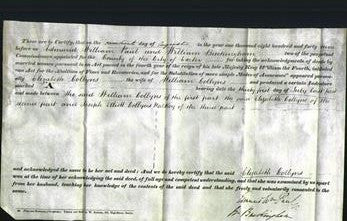 These are to Certify, that on the day of August in the year One thousand eight hundred and forty
before us Edmund William Paul and William Buckingham two of the perpetual
Commissioners appointed for the County of the City of Exeter for taking the acknowledgments of deeds by
married women pursuant to an Act passed in the fourth year of the reign of his late Majesty King William the Fourth, intituled
"an Act for the Abolition of Fines and Recoveries, and for the Substitution of more simple Modes of Assurance" appeared personally
Elizabeth Collyns the wife of William Collyns and produced
marked A bearing date the thirty first day of July last past
and made between The said William Collyns of the first part the said Elizabeth Collyns of the
second part and Joseph Elliott Collyns of the third part
and acknowledged the same to be her act and deed: And we do hereby certify that the said Elizabeth Collyns
was at the time of her acknowledging the said deed, of full age and competent understanding, and that she was examined by us apart
from her husband, touching her knowledge of the contents of the said deed and that she freely and voluntarily consented to the
same.